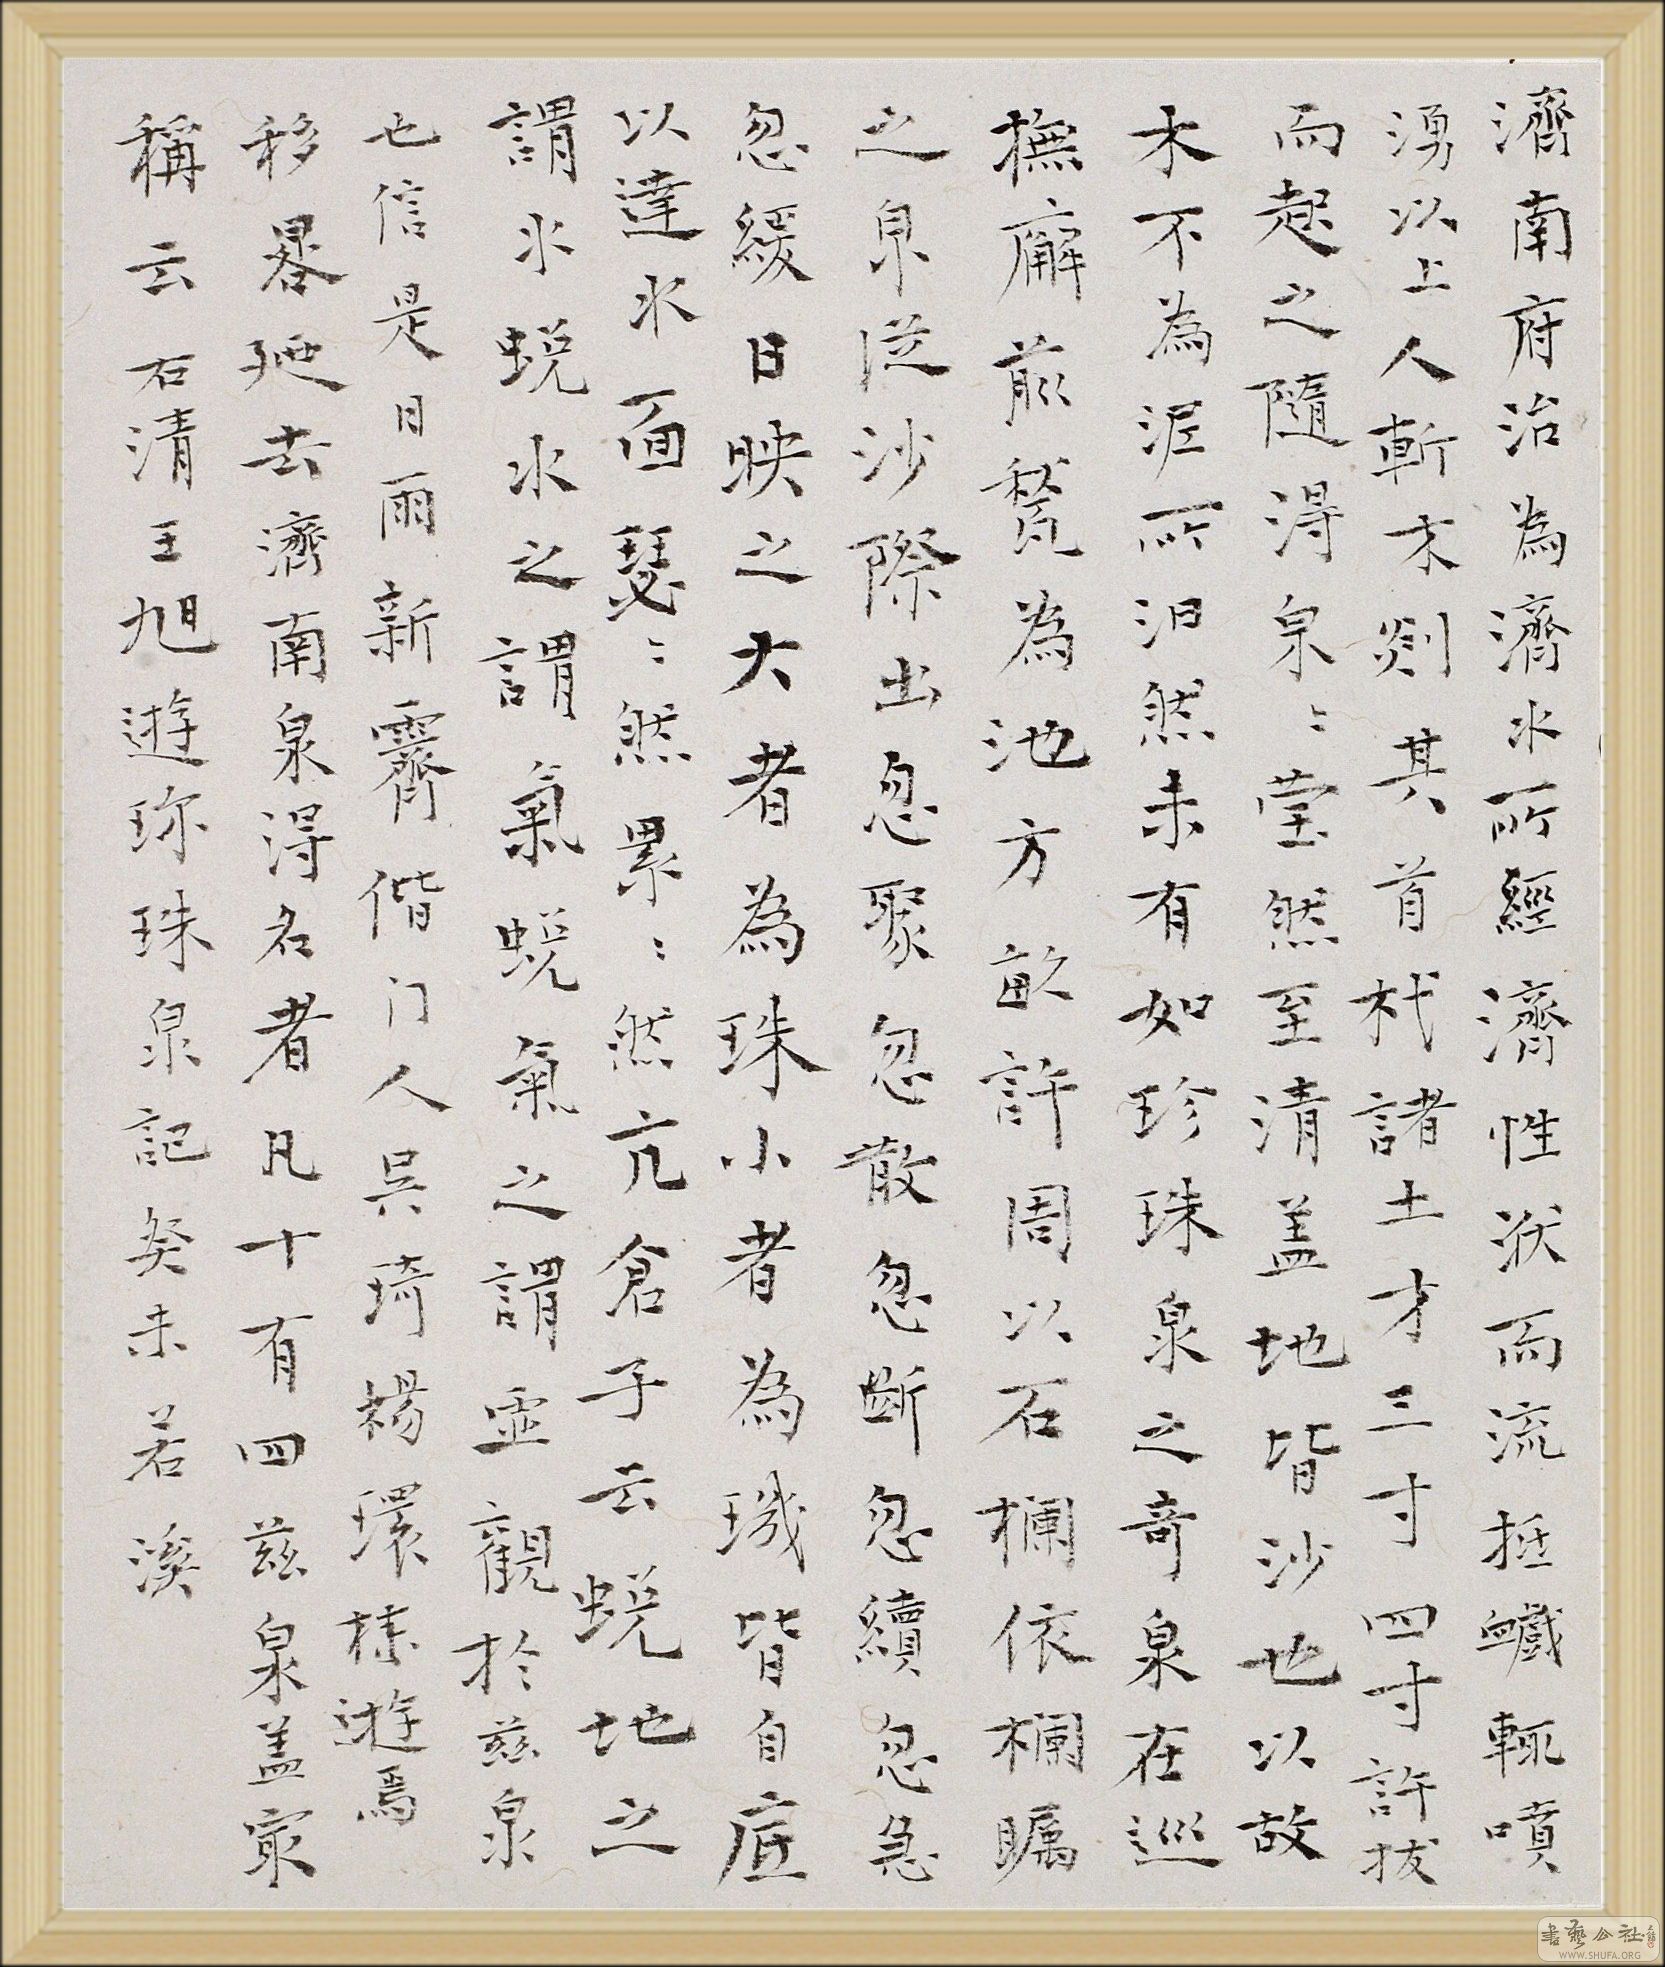 濟南府治為濟水所經濟性洑而流抵巇輒噴
湧以上人斬木剡其首杙諸土才三寸四寸許拔
而起之隨得泉〻瑩然至清盖地皆沙也以故
木不為泥所汩然未有如珍珠泉之奇泉在巡
撫廨前甃為池方畝許周以石欄依欄矚
之泉從沙際出忽聚忽散忽断忽續忽急
忽緩日映之大者為珠小者為璣皆自底
以達水面瑟〻然累〻然亢倉子云蛻地之
謂水蛻水之謂氣蛻氣之謂虛觀於茲泉
也信是日雨新霽偕门人吳琦楊環栋遊焉
移晷廼去濟南泉得名者凡十有四茲泉盖冣
稱云右清王旭遊珎珠泉記癸未若溪
書藝公社
WWW.SHUFA.ORG